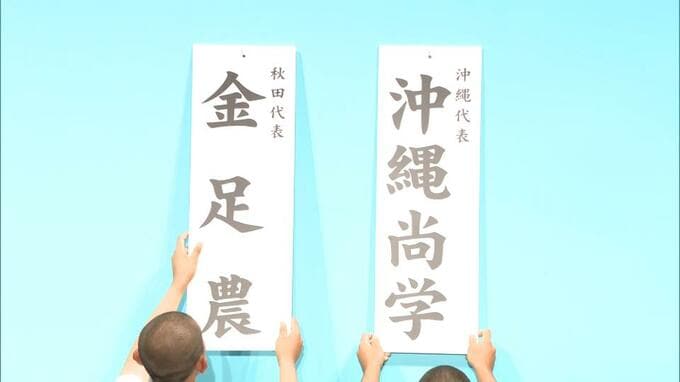 秋田代表
金足農
沖縄代表
沖縄尚学